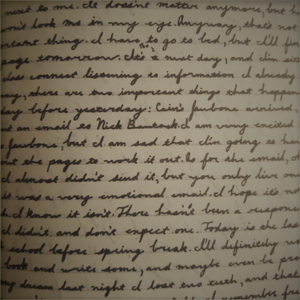 next to me. It doesn't matter anymore, but he
won't look me in my eye. Anyway, that's not
thing. I have to go to bed, but I'll fin
page tomorrow. It's a next day, and I'm sitt
does correct listening is information I already
ay, there are two important things that happen
day before yesterday: Cain's funbone arrived,
nt an email to Nick Bantock. I am very excited
funbone, but I am sad that I'm going to hav
out the pages to work it out. As for the email, o
I almost didn't send it, but you only live onc
it was a very emotional email. I hope it's not
I know it isn't. There hasn't been a respons
I didn't, and don't expect one. Today is the las
school before spring break. I'll definitely us
look and write some, and maybe even be pro
my dream last night I lost two teeth, and that
remember